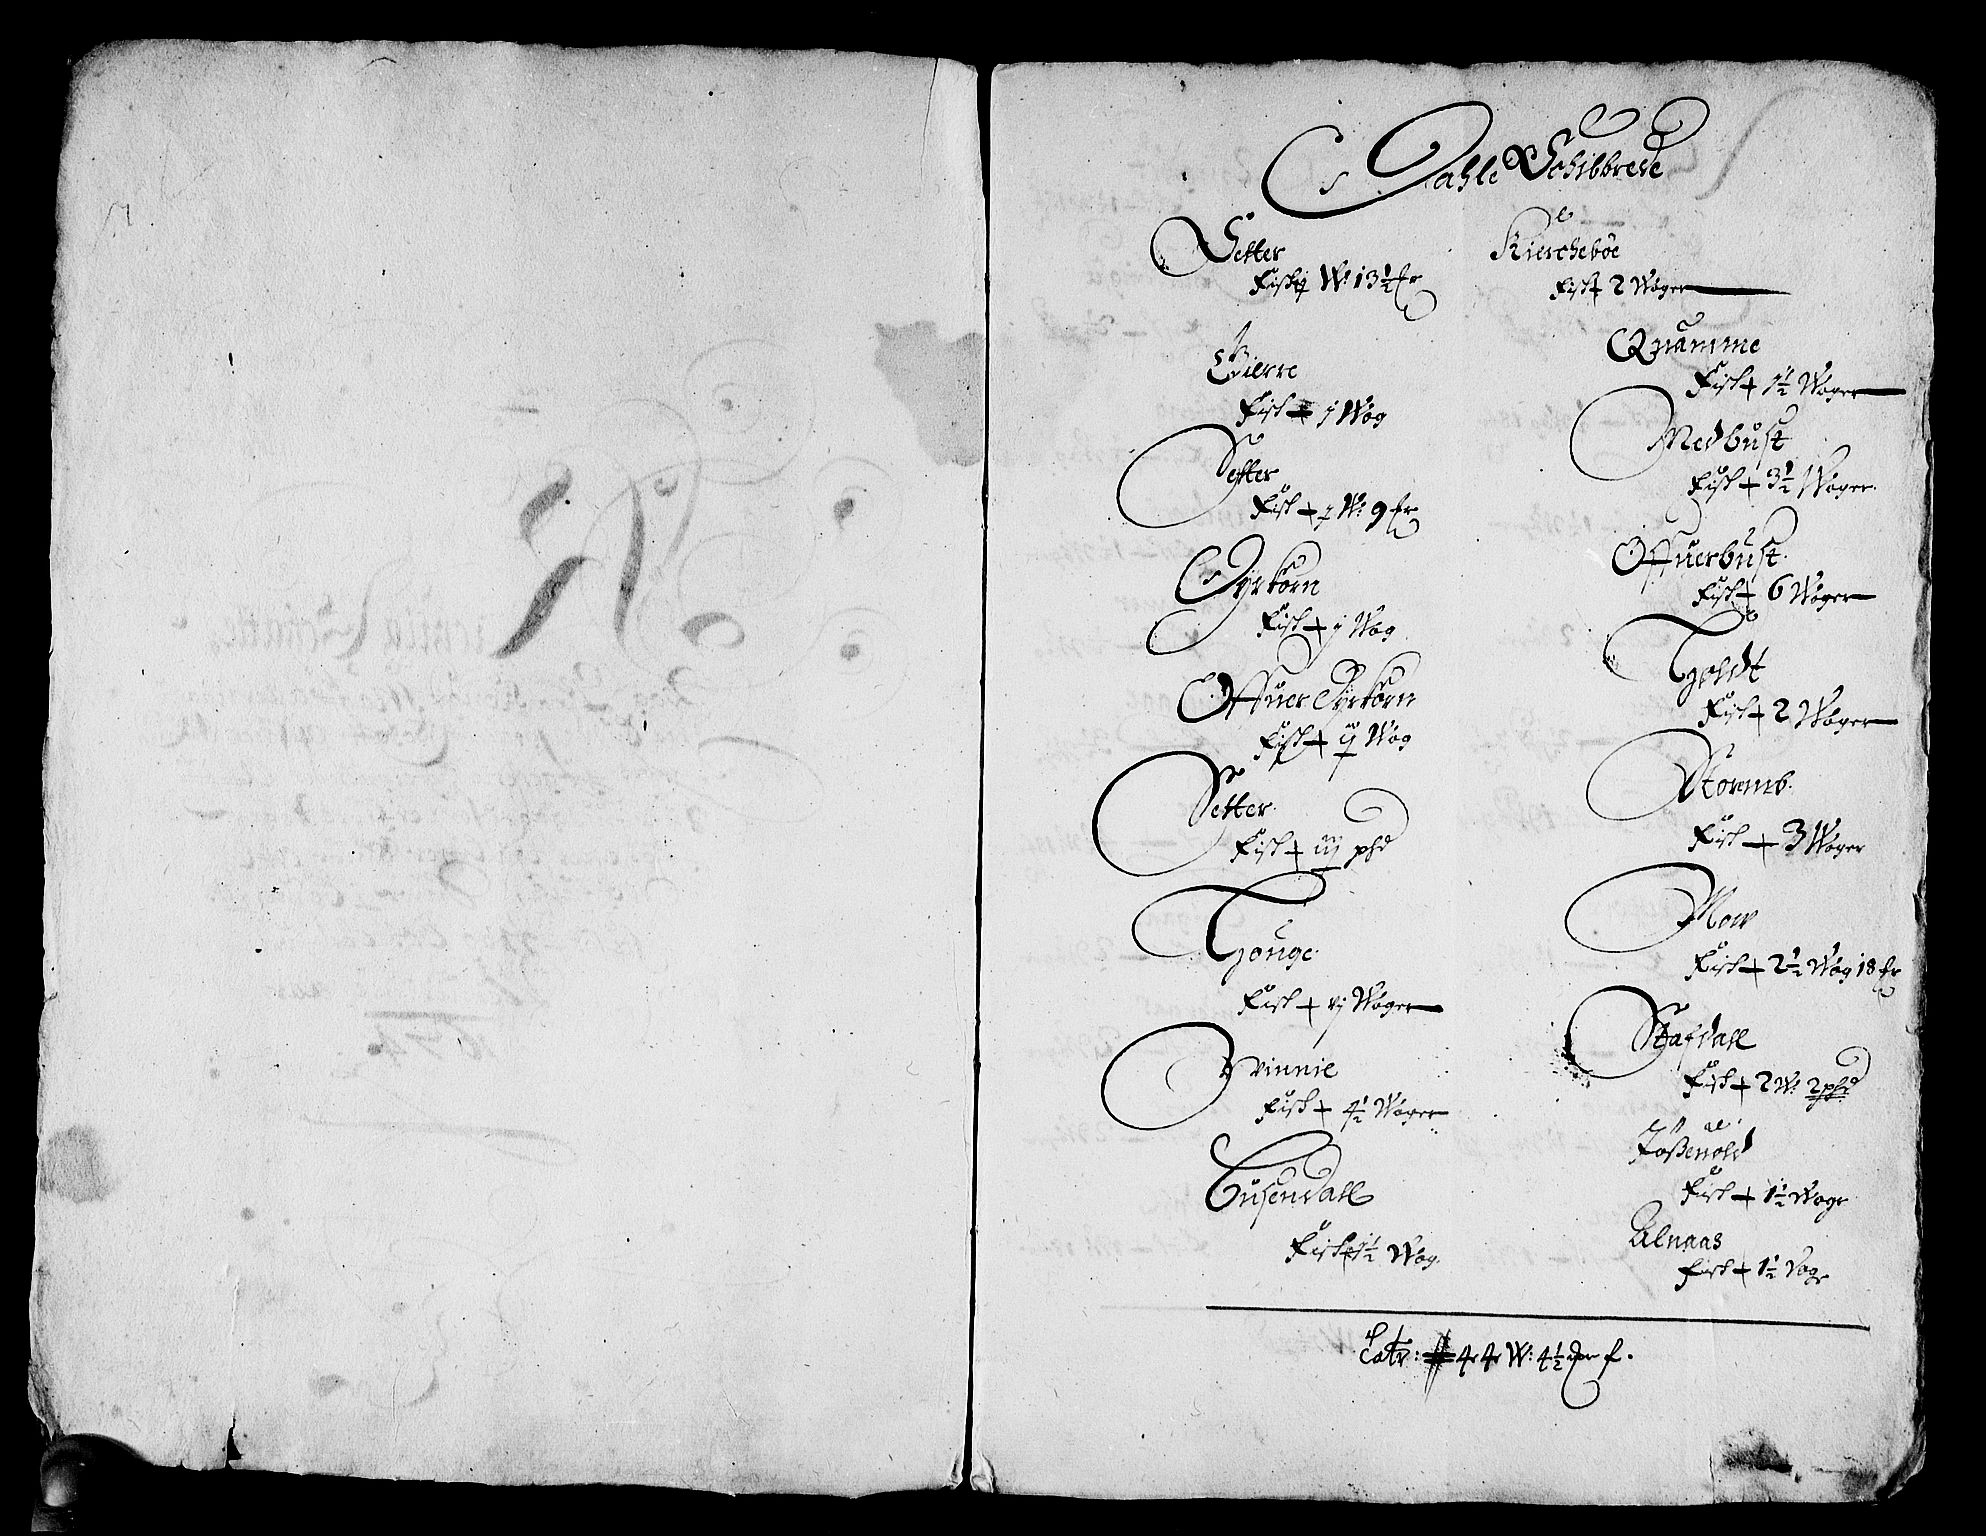 Dahle Schibbrede
Setter
Fisk ij W: 13½ fr
Bierre
Fisk + j Wog
Setter
Fisk + j W: 9 fr
Dyrkorn
Fisk + j Wog
Offuer Dyrkorn
Fisk + ij Wog
Setter
Fisk + iij phd
Tzouge
Fisk + vj Woger
Winnie
Fisk + 4½ Woger
Tusendall
Fisk + 1½ Wog
Kierchebøe
Fisk + 2 Woger
Quamme
Fisk + 1½ Woger
Medbust
Fisk + 3½ Woger
Offuerbust
Fisk + 6 Woger
Fisk + 2 Woger
Storemb.
Fisk + 3 Woger
Mow
Fisk + 2½ Wog 18 fr
Stafdall
Fisk + 2 W: 2 phd
Fisk + 1½ Woge
Alnaas
Fisk + 1½ Voge
Latr: 44 W: 4½ f.